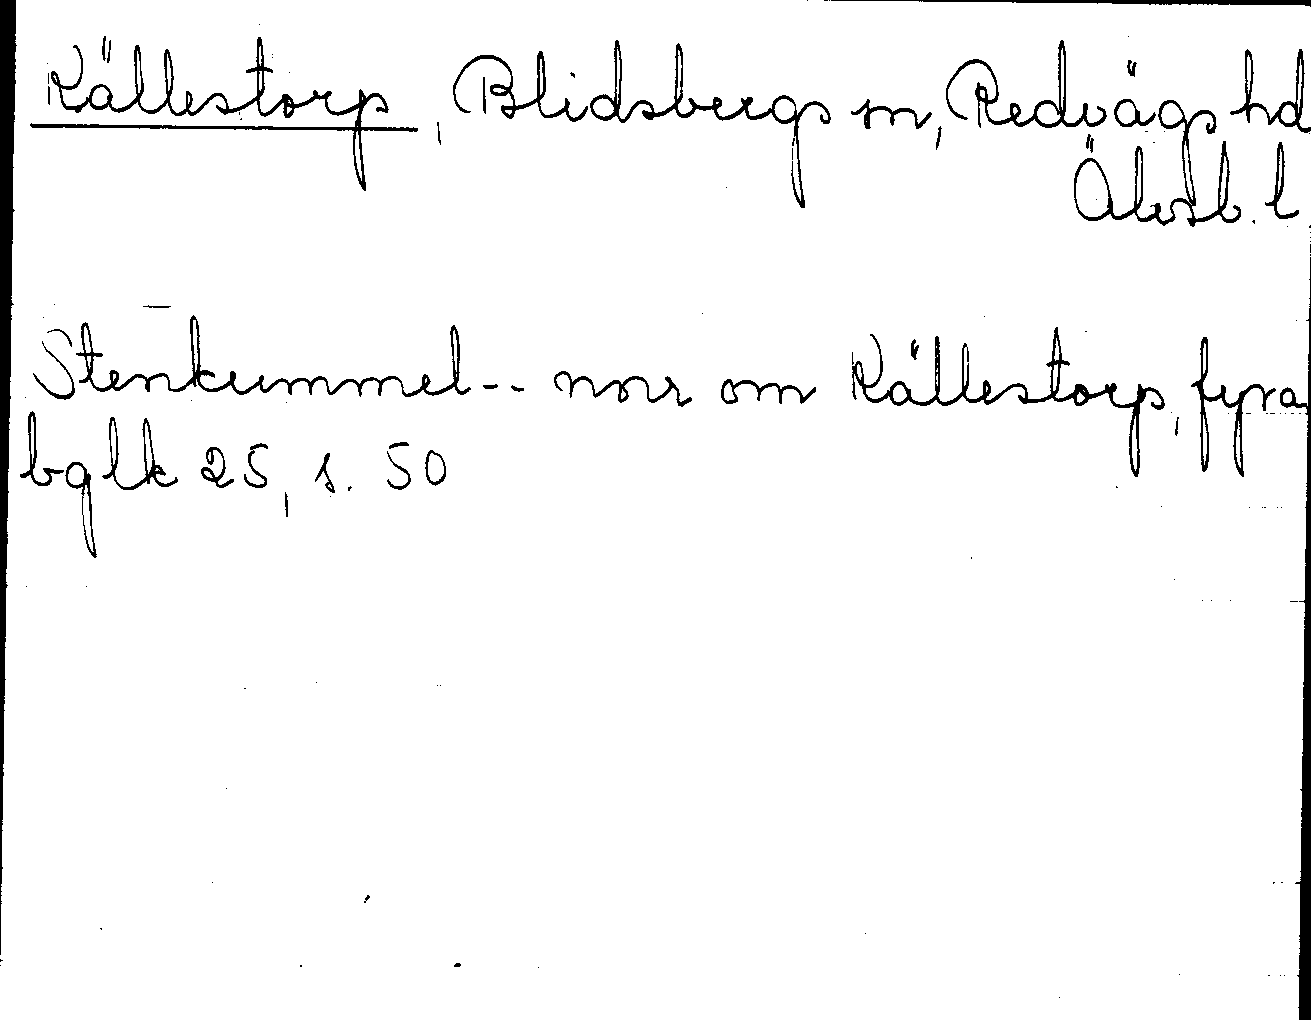 Källestorp, Blidsbergs sn, Redvägs hd
Älvsb. l.
Stenkummel-- norr om Källestorp, fyra
bglk 25, s. 50